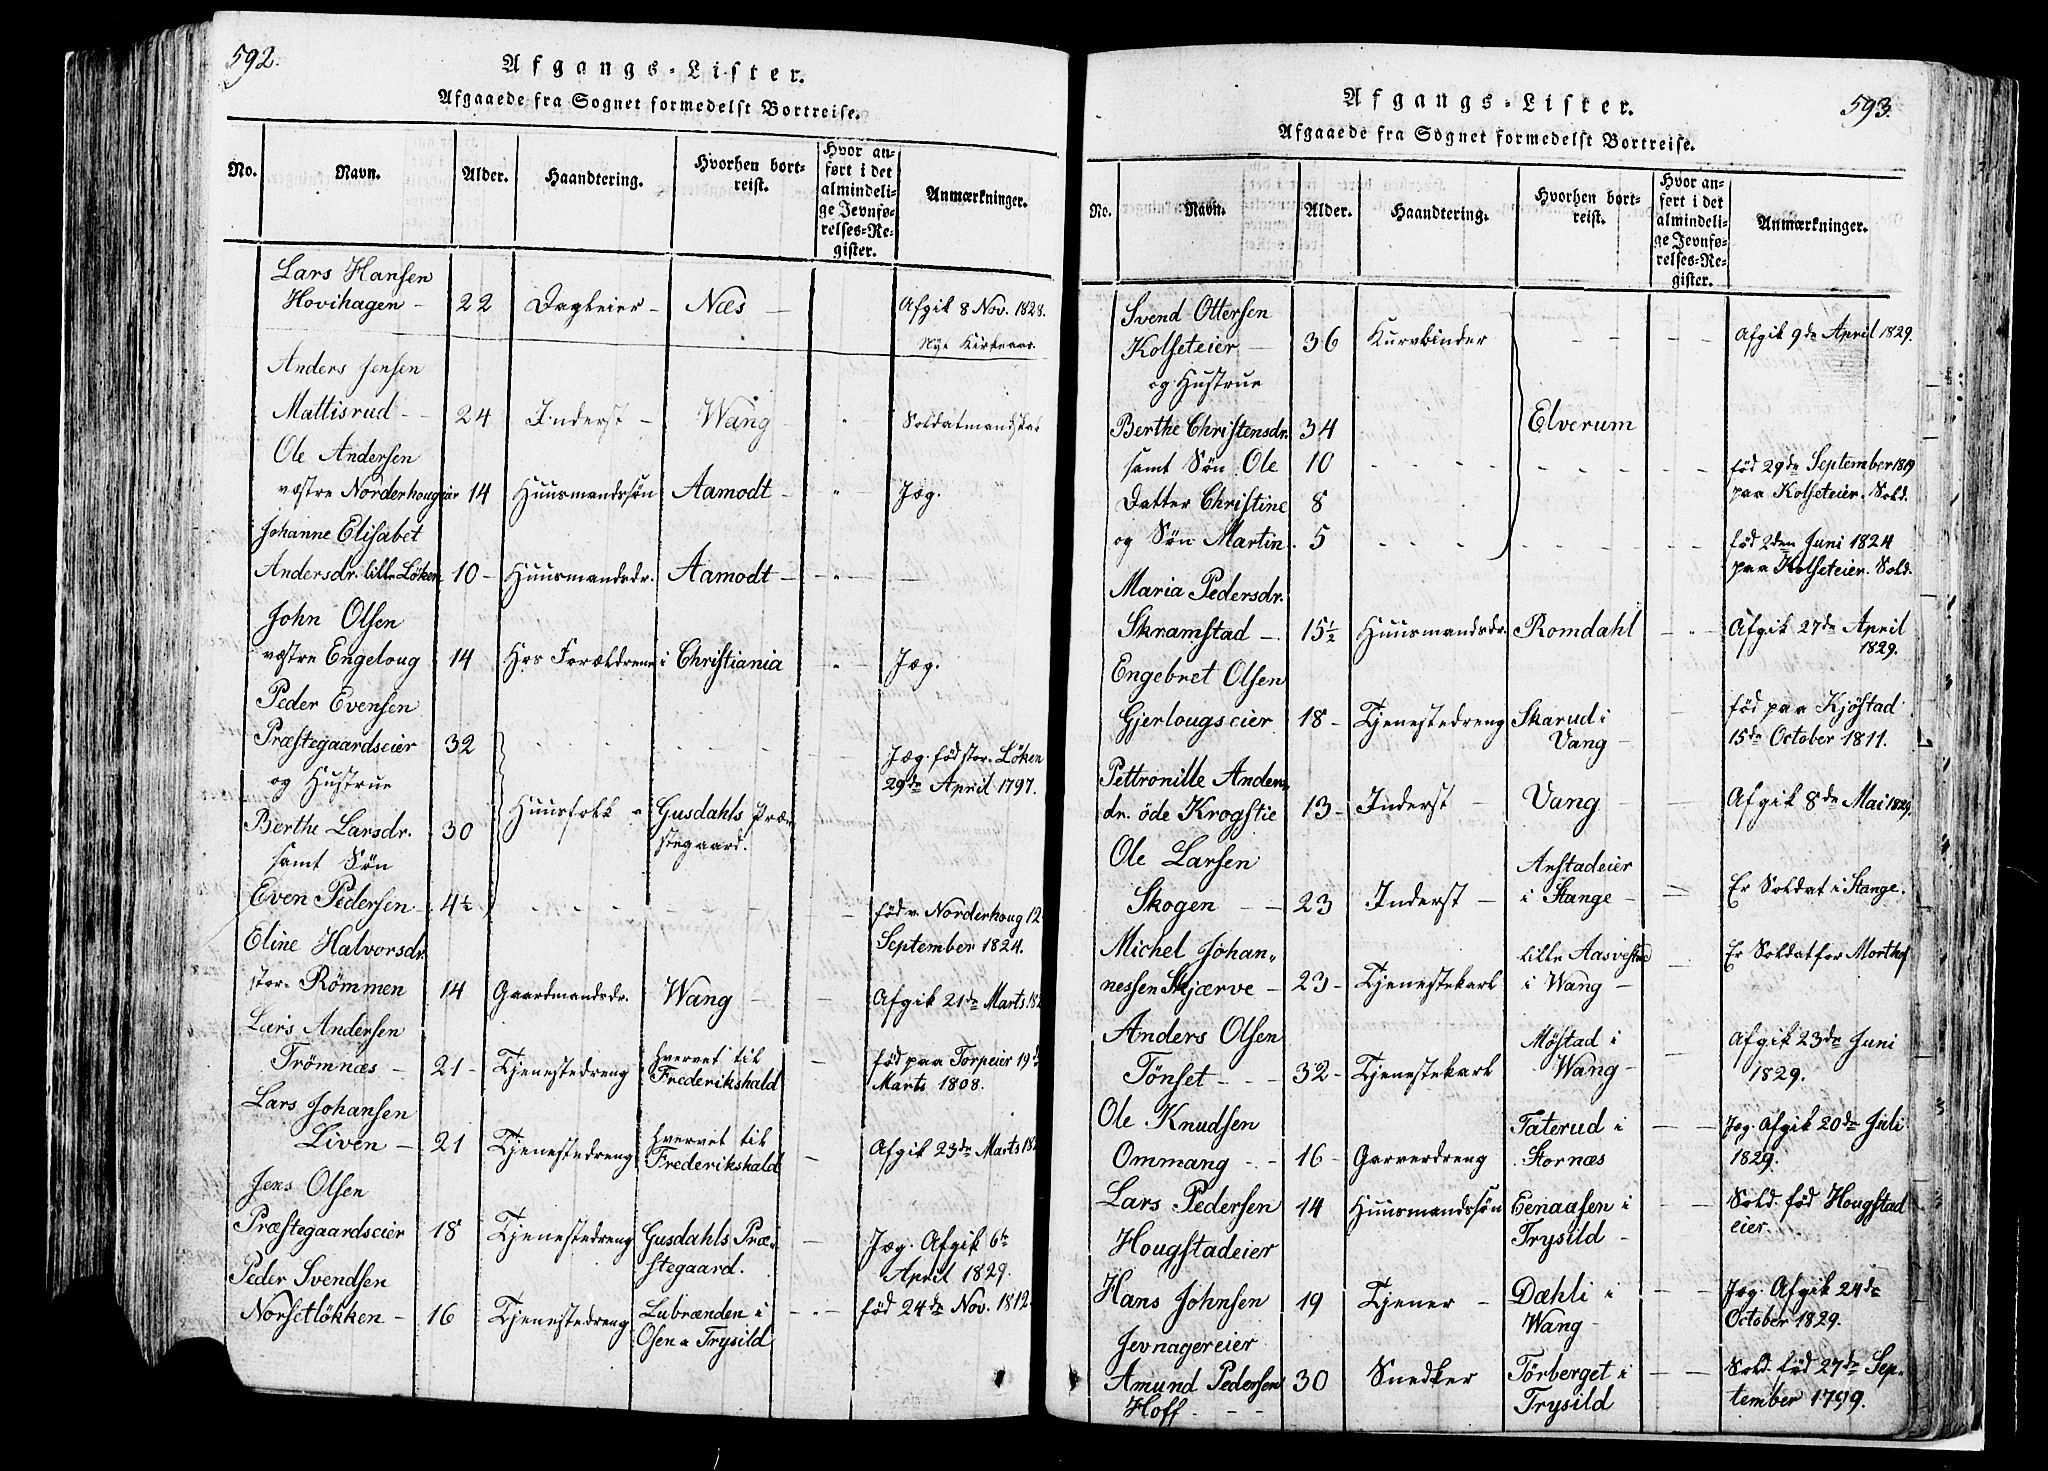 592.
Afgangs-Lister.
Afgaaede fra Sognet formedelst Bortreise.
No. Navn. Alder. Haandtering. Hvorhen bortreist. Hvor anført i det almindelige Jevnførelses-Register. Anmærkninger.
Lars Hansen
Hovihagen - 22 Dagleier - Næs - Afgik 8 Nov. 1828.
Nye Kirkeaar.
Anders Jensen
Mattisrud - - 24 Inderst - Wang - " Soldatmandskab
Ole Andersen
vestre Norderhougeier 14 Huusmandssøn Aamodt - " Jæg.
Johanne Elisabet
Andersdr. lille Løken 10 - Huusmandsdr. Aamodt - - " - -
John Olsen
vestre Engeloug 14 Hos Forældrene i Christiania " Jæg.
Peder Evensen
Præstegaardseier 32 - - - - - Jæg. fød stor. Løken
og Hustrue 29de April 1797.
Berthe Larsdr. 30 Huusfolk - Gusdahls Præ-
samt Søn stegaard.
Even Pedersen - 4½ - - - - - fød v. Norderhoug 12
Eline Halvorsdr. September 1824.
stor- Rømmen 14 Gaardmandsdr. Wang - Afgik 21de Marts 182
Lars Andersen
Trømnæs - 21 - Tjenestedreng hvervet til Frederikshald - fød paa Torpeier 19de
Marts 1808.
Lars Johansen
Liven - 21 Tjenestedreng hvervet til Frederikshald - Afgik 23de Marts 182
Jens Olsen
Præstegaardseier 18 Tjenestedreng Gusdahls Præ- - Jæg. Afgik 6te
stegaard. April 1829.
Peder Svendsen
Norsetløkken - 16 Tjenestedreng Lubrænden i - " - fød 24de Nov. 1812
Osen a Trysild
593.
Afgangs-Lister.
Afgaaede fra Sognet formedelst Bortreise.
No. Navn. Alder. Haandtering. Hvorhen bortreist. Hvor anført i det almindelige Jevnførelses-Register. Anmærkninger.
Svend Ottersen
Kolseteier - 36 Kurvbinder - - - - Afgik 9de April 1829.
og Hustrue
Berthe Christensdr. 34 Elverum
samt Søn Ole 10 - - - - - - - fød 29de September 1819
Datter Christine 8 paa Kolseteier. Sold.
og Søn Martin. 5 - - - - - - - fød 2den Juni 1824
paa Kolseteier. Sold.
Maria Pedersdr.
Skramstad - 15½ Huusmandsdr. Romdahl - " - Afgik 27de April
1829.
Engebret Olsen
Gjerlougseier 18 - Tjenestedreng Skarud i - fød paa Kjøstad
Vang - 15de October 1811.
Pettronille Anders
dr. øde Krogstie 13 - Inderst - Vang - - Afgik 8de Mai 1829.
Ole Larsen Anstadeier
Skogen - - 23 Inderst - i Stange - - Er Soldat i Stange.
Michel Johan- lille Aasvestad - Er Soldat for
nessen Skjærve - 23 - Tjenestekarl i Wang -
Anders Olsen Møstad i - Afgik 23de Juni
Tønset - - - 32 - Tjenestekarl Wang - 1829.
Ole Knudsen Taterud i - - Jæg. Afgik 20de Juli
Ommang - - 16 - Garverdreng Stornæs 1829.
Lars Pedersen 14 Huusmandssøn Eenaasen i - - Sold. fød Hougstad
Hougstadeier Trysild - eier.
Hans Johnsen 19 Tjener - Dæhli i - - Jæg. Afgik 24de
Jevnagereier Wang - October 1829.
Amund Pedersen 30 Snedker Tørberget i - - Sold. fød 27de Sep-
Hoff - - - Trysild tember 1799.